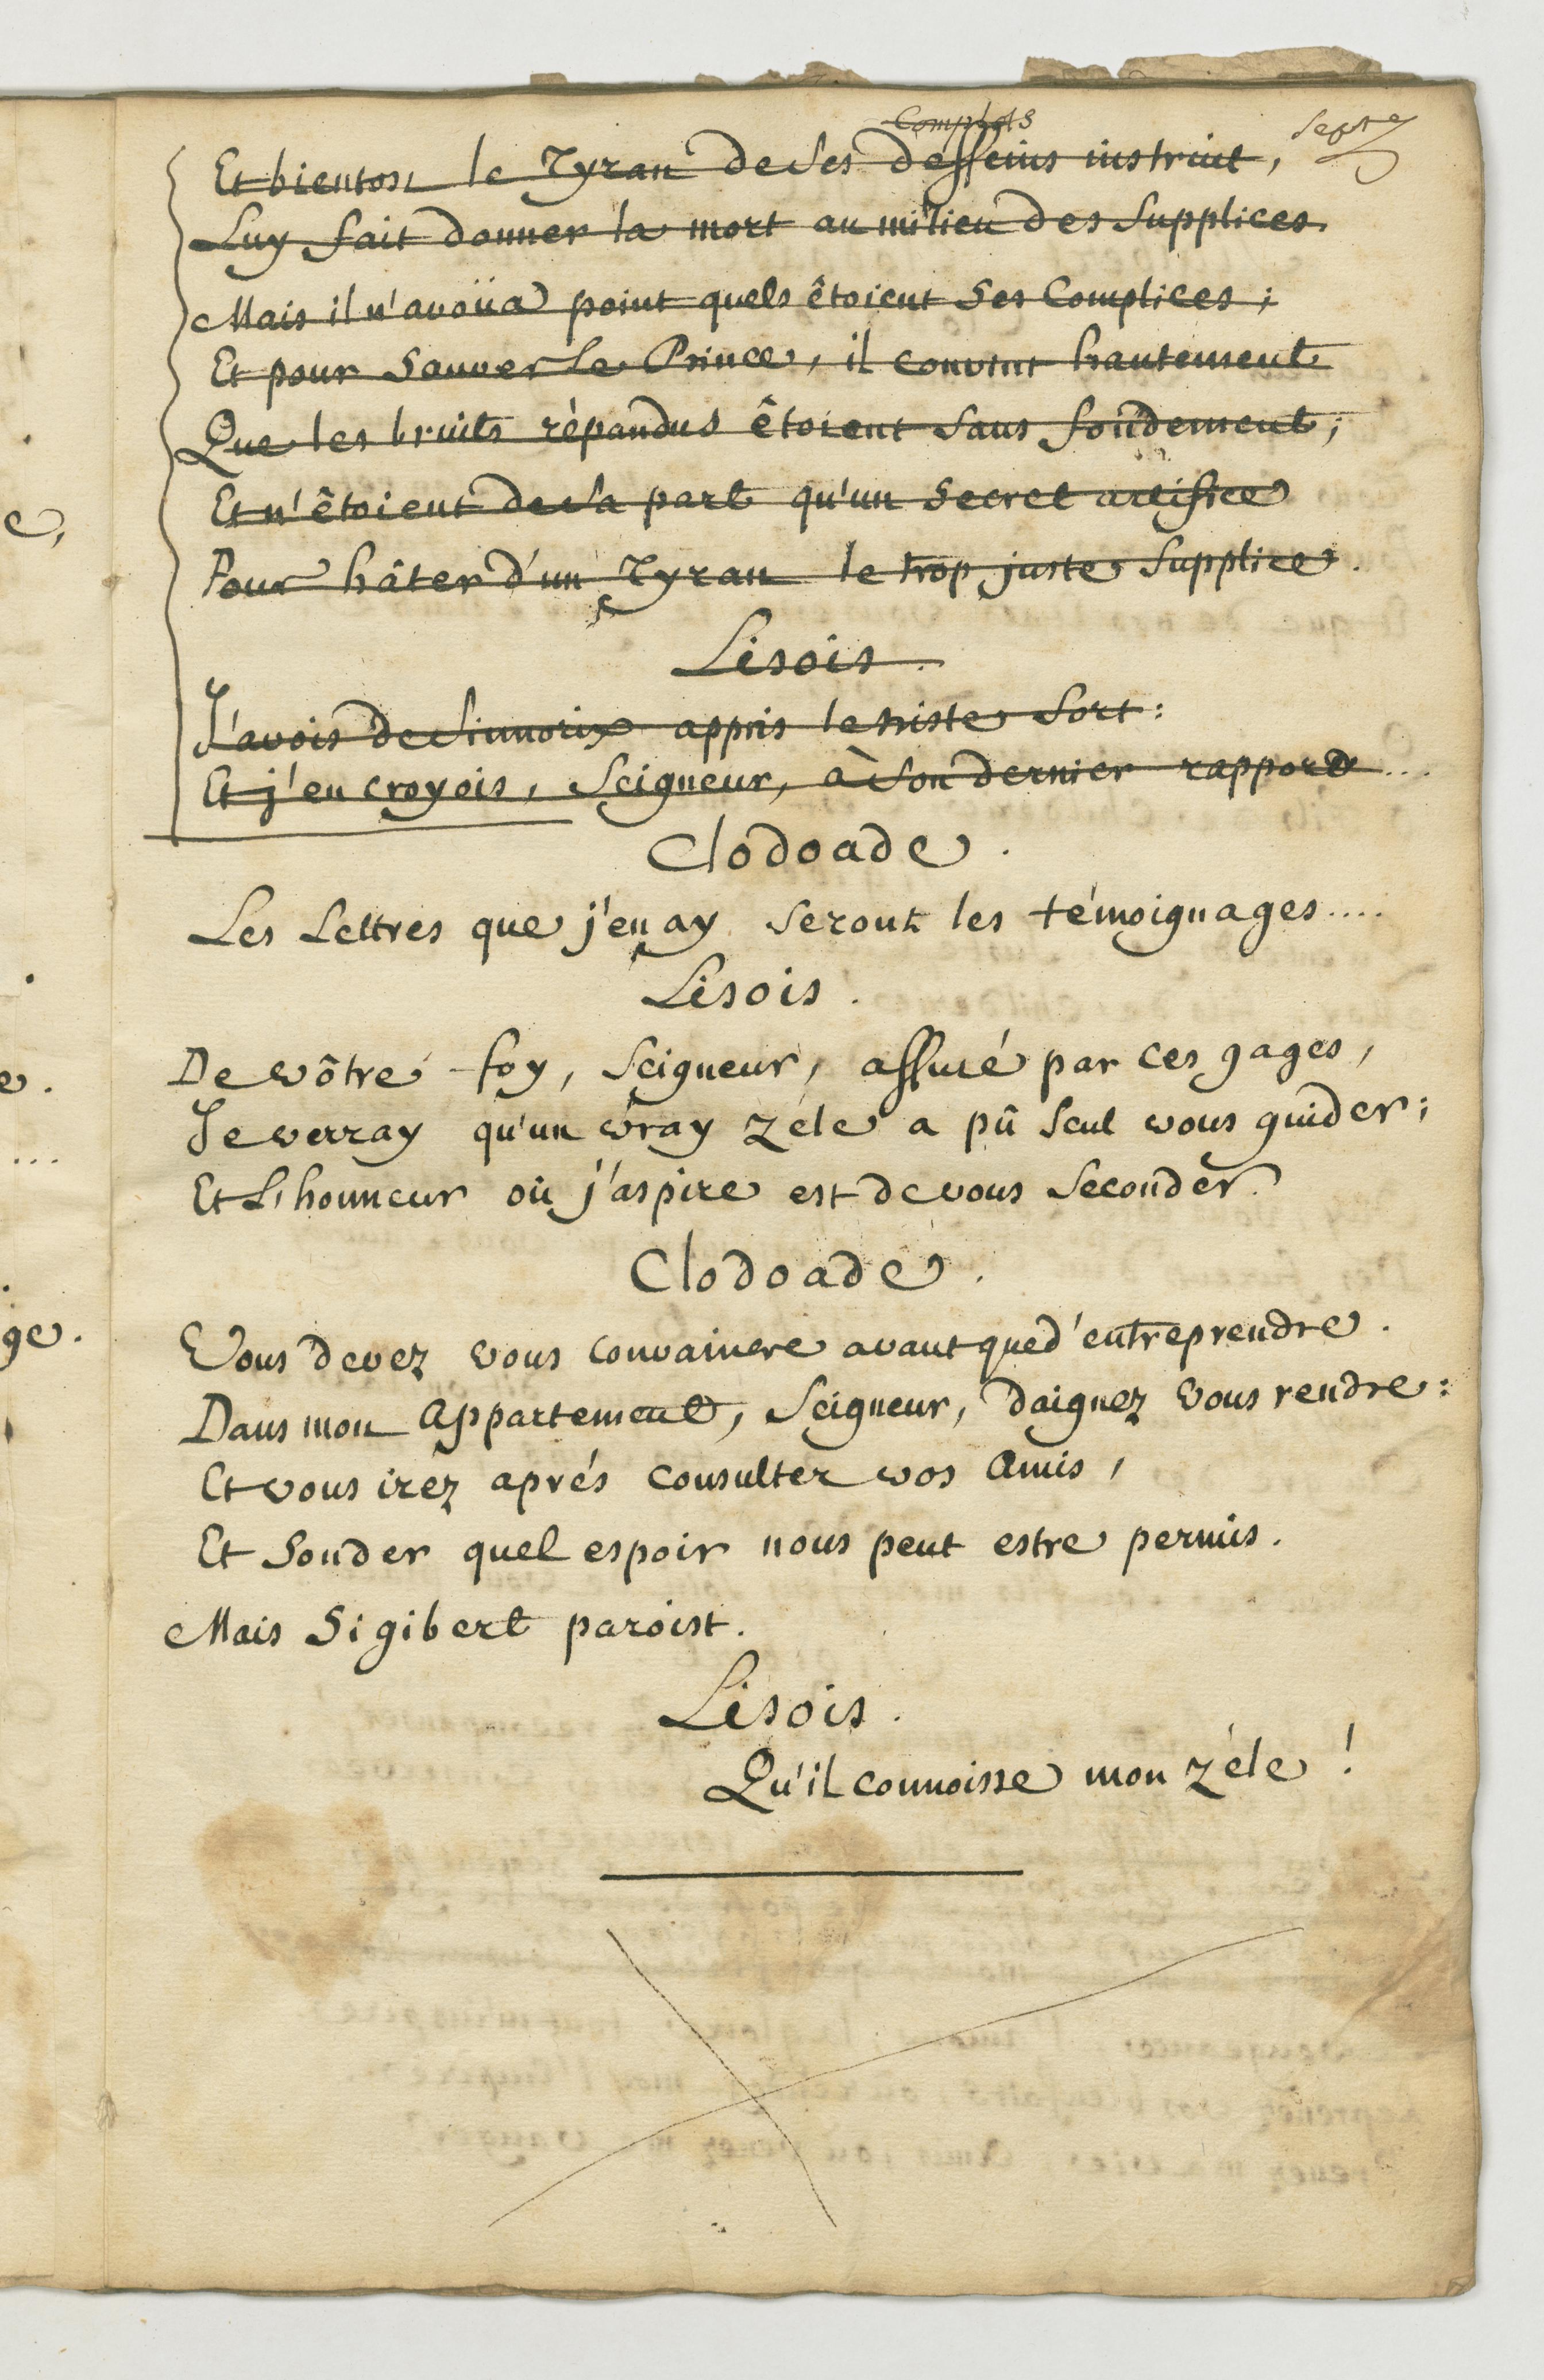 Complots
Septe
Et bientost le Tyran de Ses desseins instruit,
Luy fait donner la mort au milieu des Supplices
Mais il n'avoüa point quels êtoient Ses Complices ;
Et pour Sauver le Prince, il convint hautement
Que les bruits répandus êtoient Sans fondement ;
Et n'êtoient de Sa part qu'un Secret artifice
Pour hâter d'un Tyran le trop juste Supplice.
Lisois.
J'avois de Sinnorix appris le triste Sort :
Et j'en croyois, Seigneur, à Son dernier rapport ...
Clodoade.
Les Lettres que j'en ay Seront les témoignages ....
Lisois.
De vôtre foy, Seigneur, assuré par ces gages,
Je verray qu'un vray zéle a pû Seul vous guider ;
Et L'honneur où j'aspire est de vous Seconder.
Clodoade.
Vous devez vous convaincre avant que d'entreprendre.
Dans mon Appartement, Seigneur, daignez vous rendre :
Et vous irez aprés consulter vos Amis,
Et Sonder quel espoir nous peut estre permis.
Mais Sigibert paroist.
Lisois.
Qu'il connoisse mon zéle !